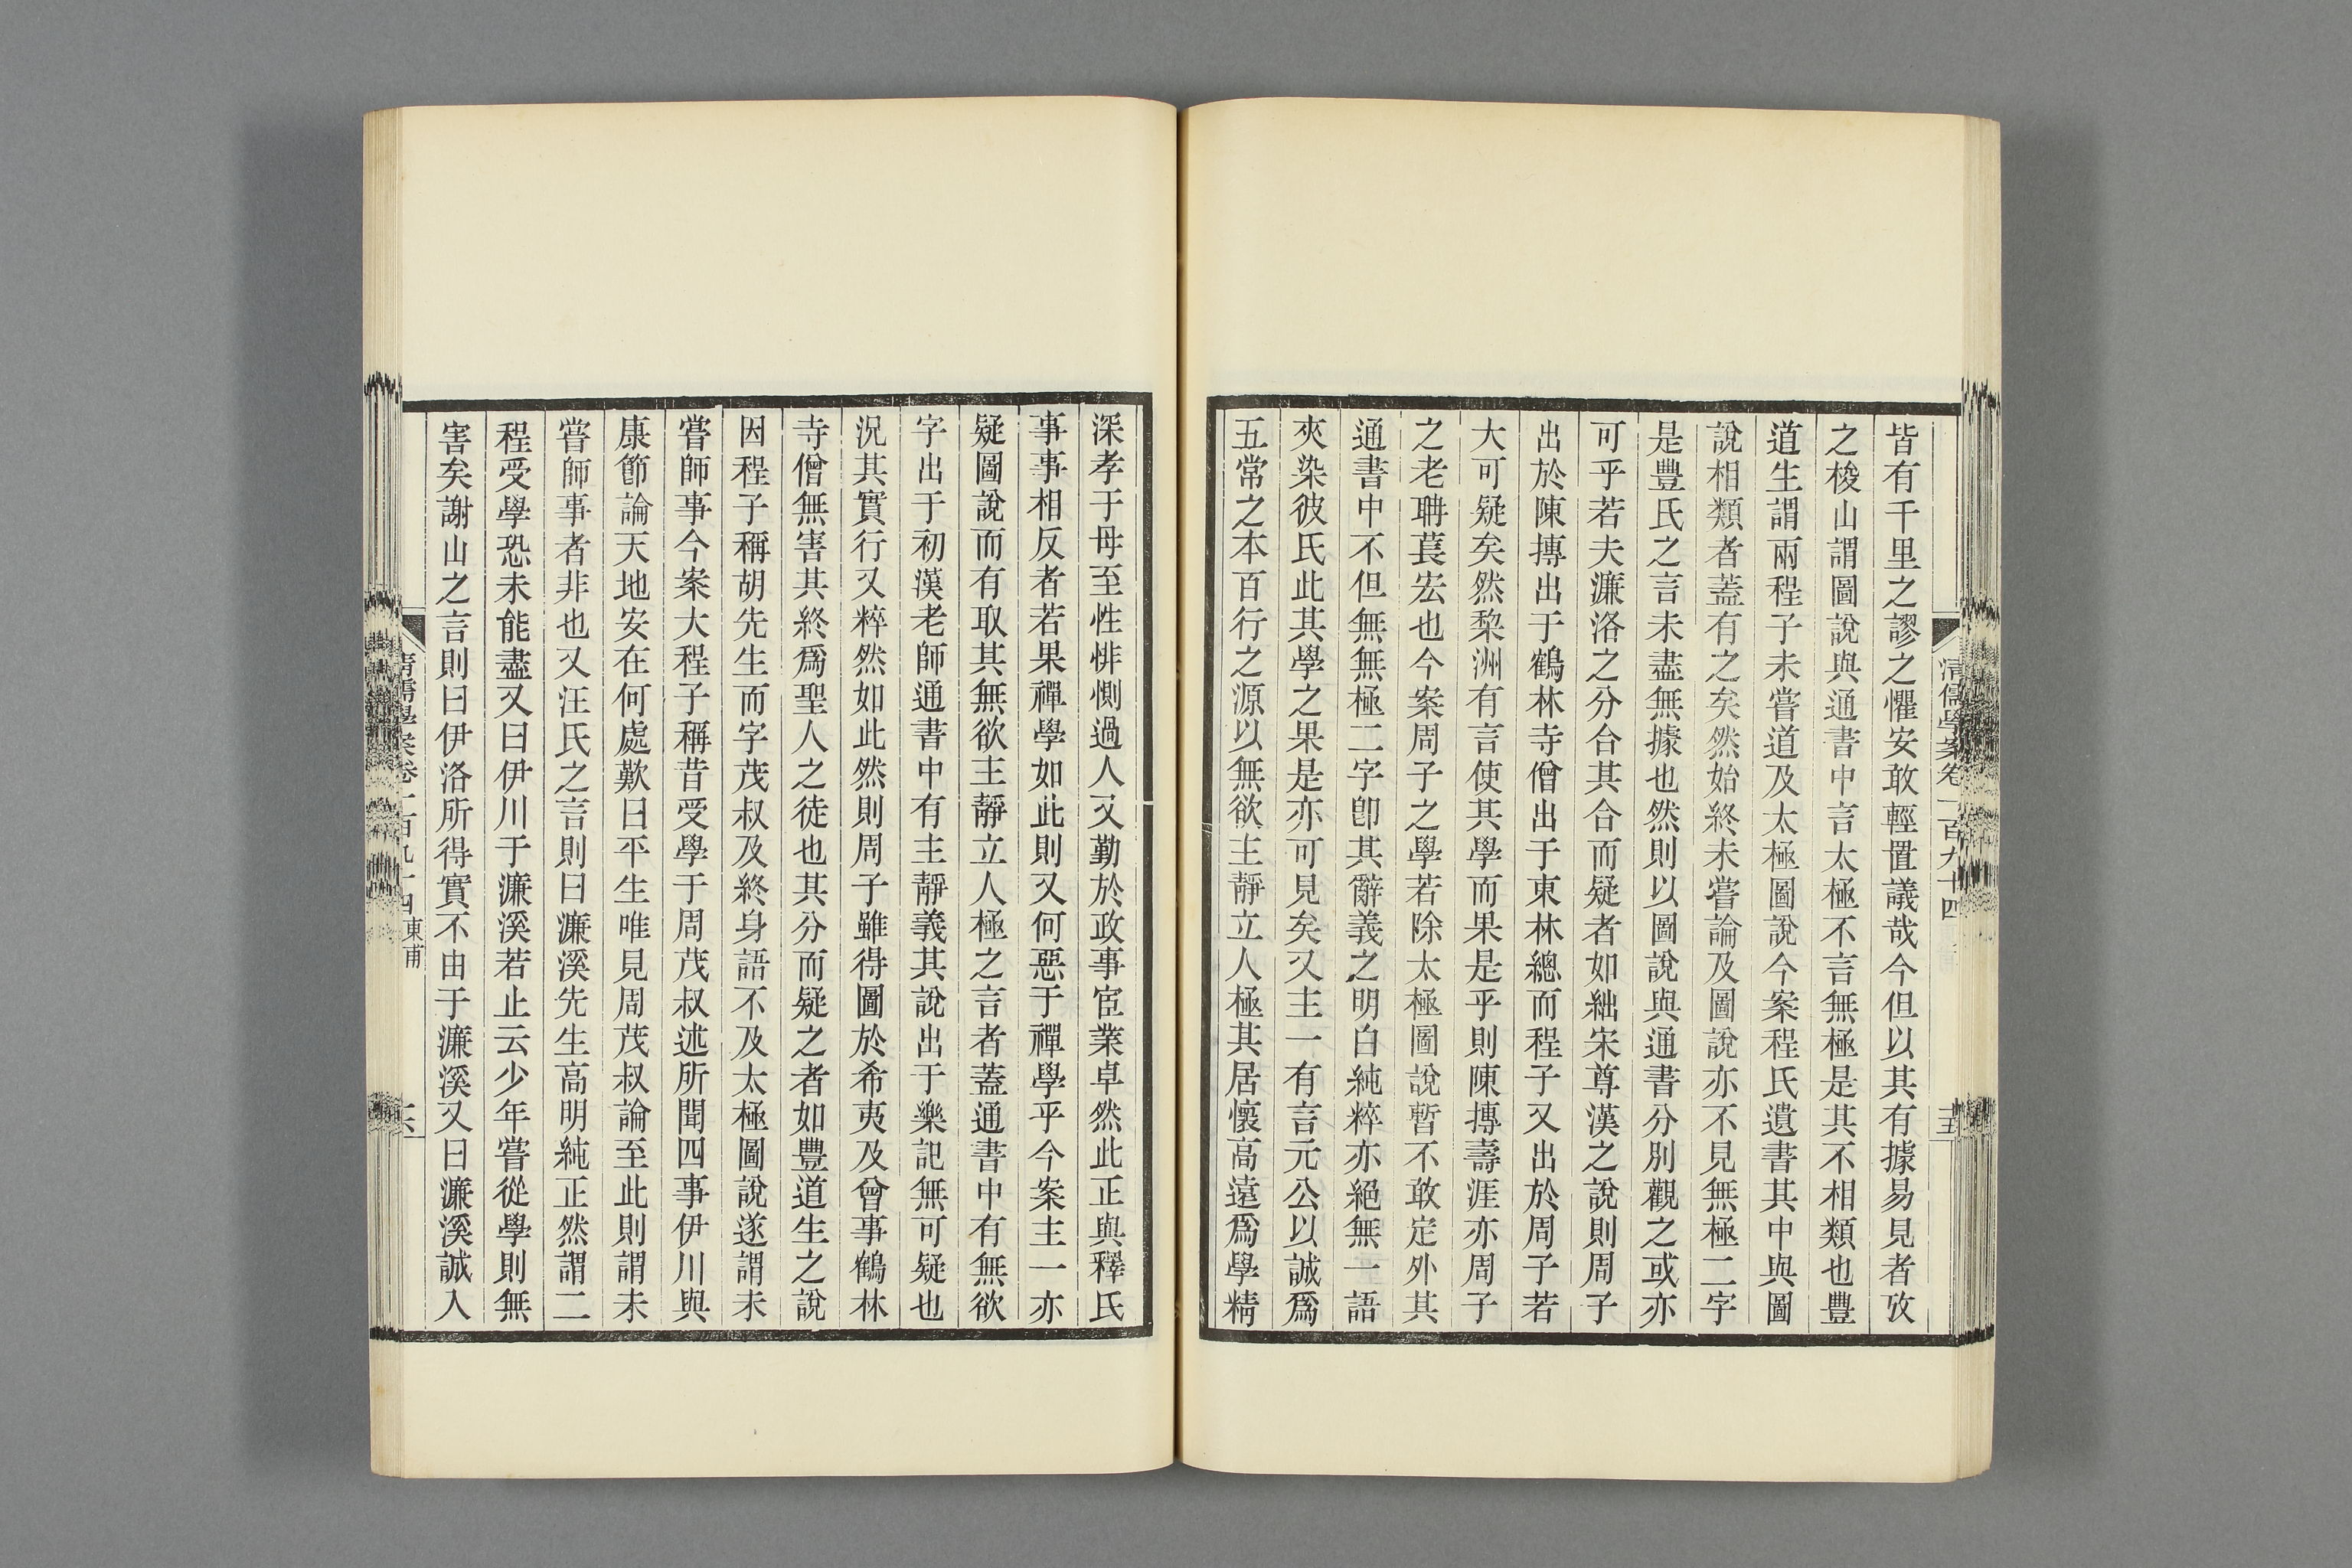 皆有千里之謬之懼安敢輕置議哉今但以其有據易見者攷
之梭山謂圖說與通書中言太極不言無極是其不相類也豐
道生謂兩程子未嘗道及太極圖說今案程氏遺書其中與圖
說相類者蓋有之矣然始終未嘗論及圖說亦不見無極二字
是豐氏之言未盡無據也然則以圖說與通書分別觀之或亦
可乎若夫濂洛之分合其合而疑者如絀宋尊漢之說則周子
出於陳摶出于鶴林寺僧出于東林總而程子又出於周子若
大可疑矣然棃洲有言使其學而果是乎則陳摶壽涯亦周子
之老聃萇宏也今案周子之學若除太極圖說暫不敢定外其
通書中不但無無極二字卽其辭義之明白純粹亦絕無一語
夾染彼氏此其學之果是亦可見矣又主一有言元公以誠爲
五常之本百行之源以無欲主靜立人極其居懷高遠爲學精
清儒學案卷一百九十四
十五
深孝于母至性悱惻過人又勤於政事宦業卓然此正與釋氏
事事相反者若果禪學如此則又何惡于禪學乎今案主一亦
疑圖說而有取其無欲主靜立人極之言者蓋通書中有無欲
字出于初漢老師通書中有主靜義其說出于樂記無可疑也
況其實行又粹然如此然則周子雖得圖於希夷及曾事鶴林
寺僧無害其終爲聖人之徒也其分而疑之者如豐道生之說
因程子稱胡先生而字茂叔及終身語不及太極圖說遂謂未
嘗師事今案大程子稱昔受學于周茂叔述所聞四事伊川與
康節論天地安在何處歎曰平生唯見周茂叔論至此則謂未
嘗師事者非也又汪氏之言則曰濂溪先生高明純正然謂二
程受學恐未能盡又曰伊川于濂溪若止云少年嘗從學則無
害矣謝山之言則曰伊洛所得實不由于濂溪又曰濂溪誠入
清儒學案卷一百九十四 東甫